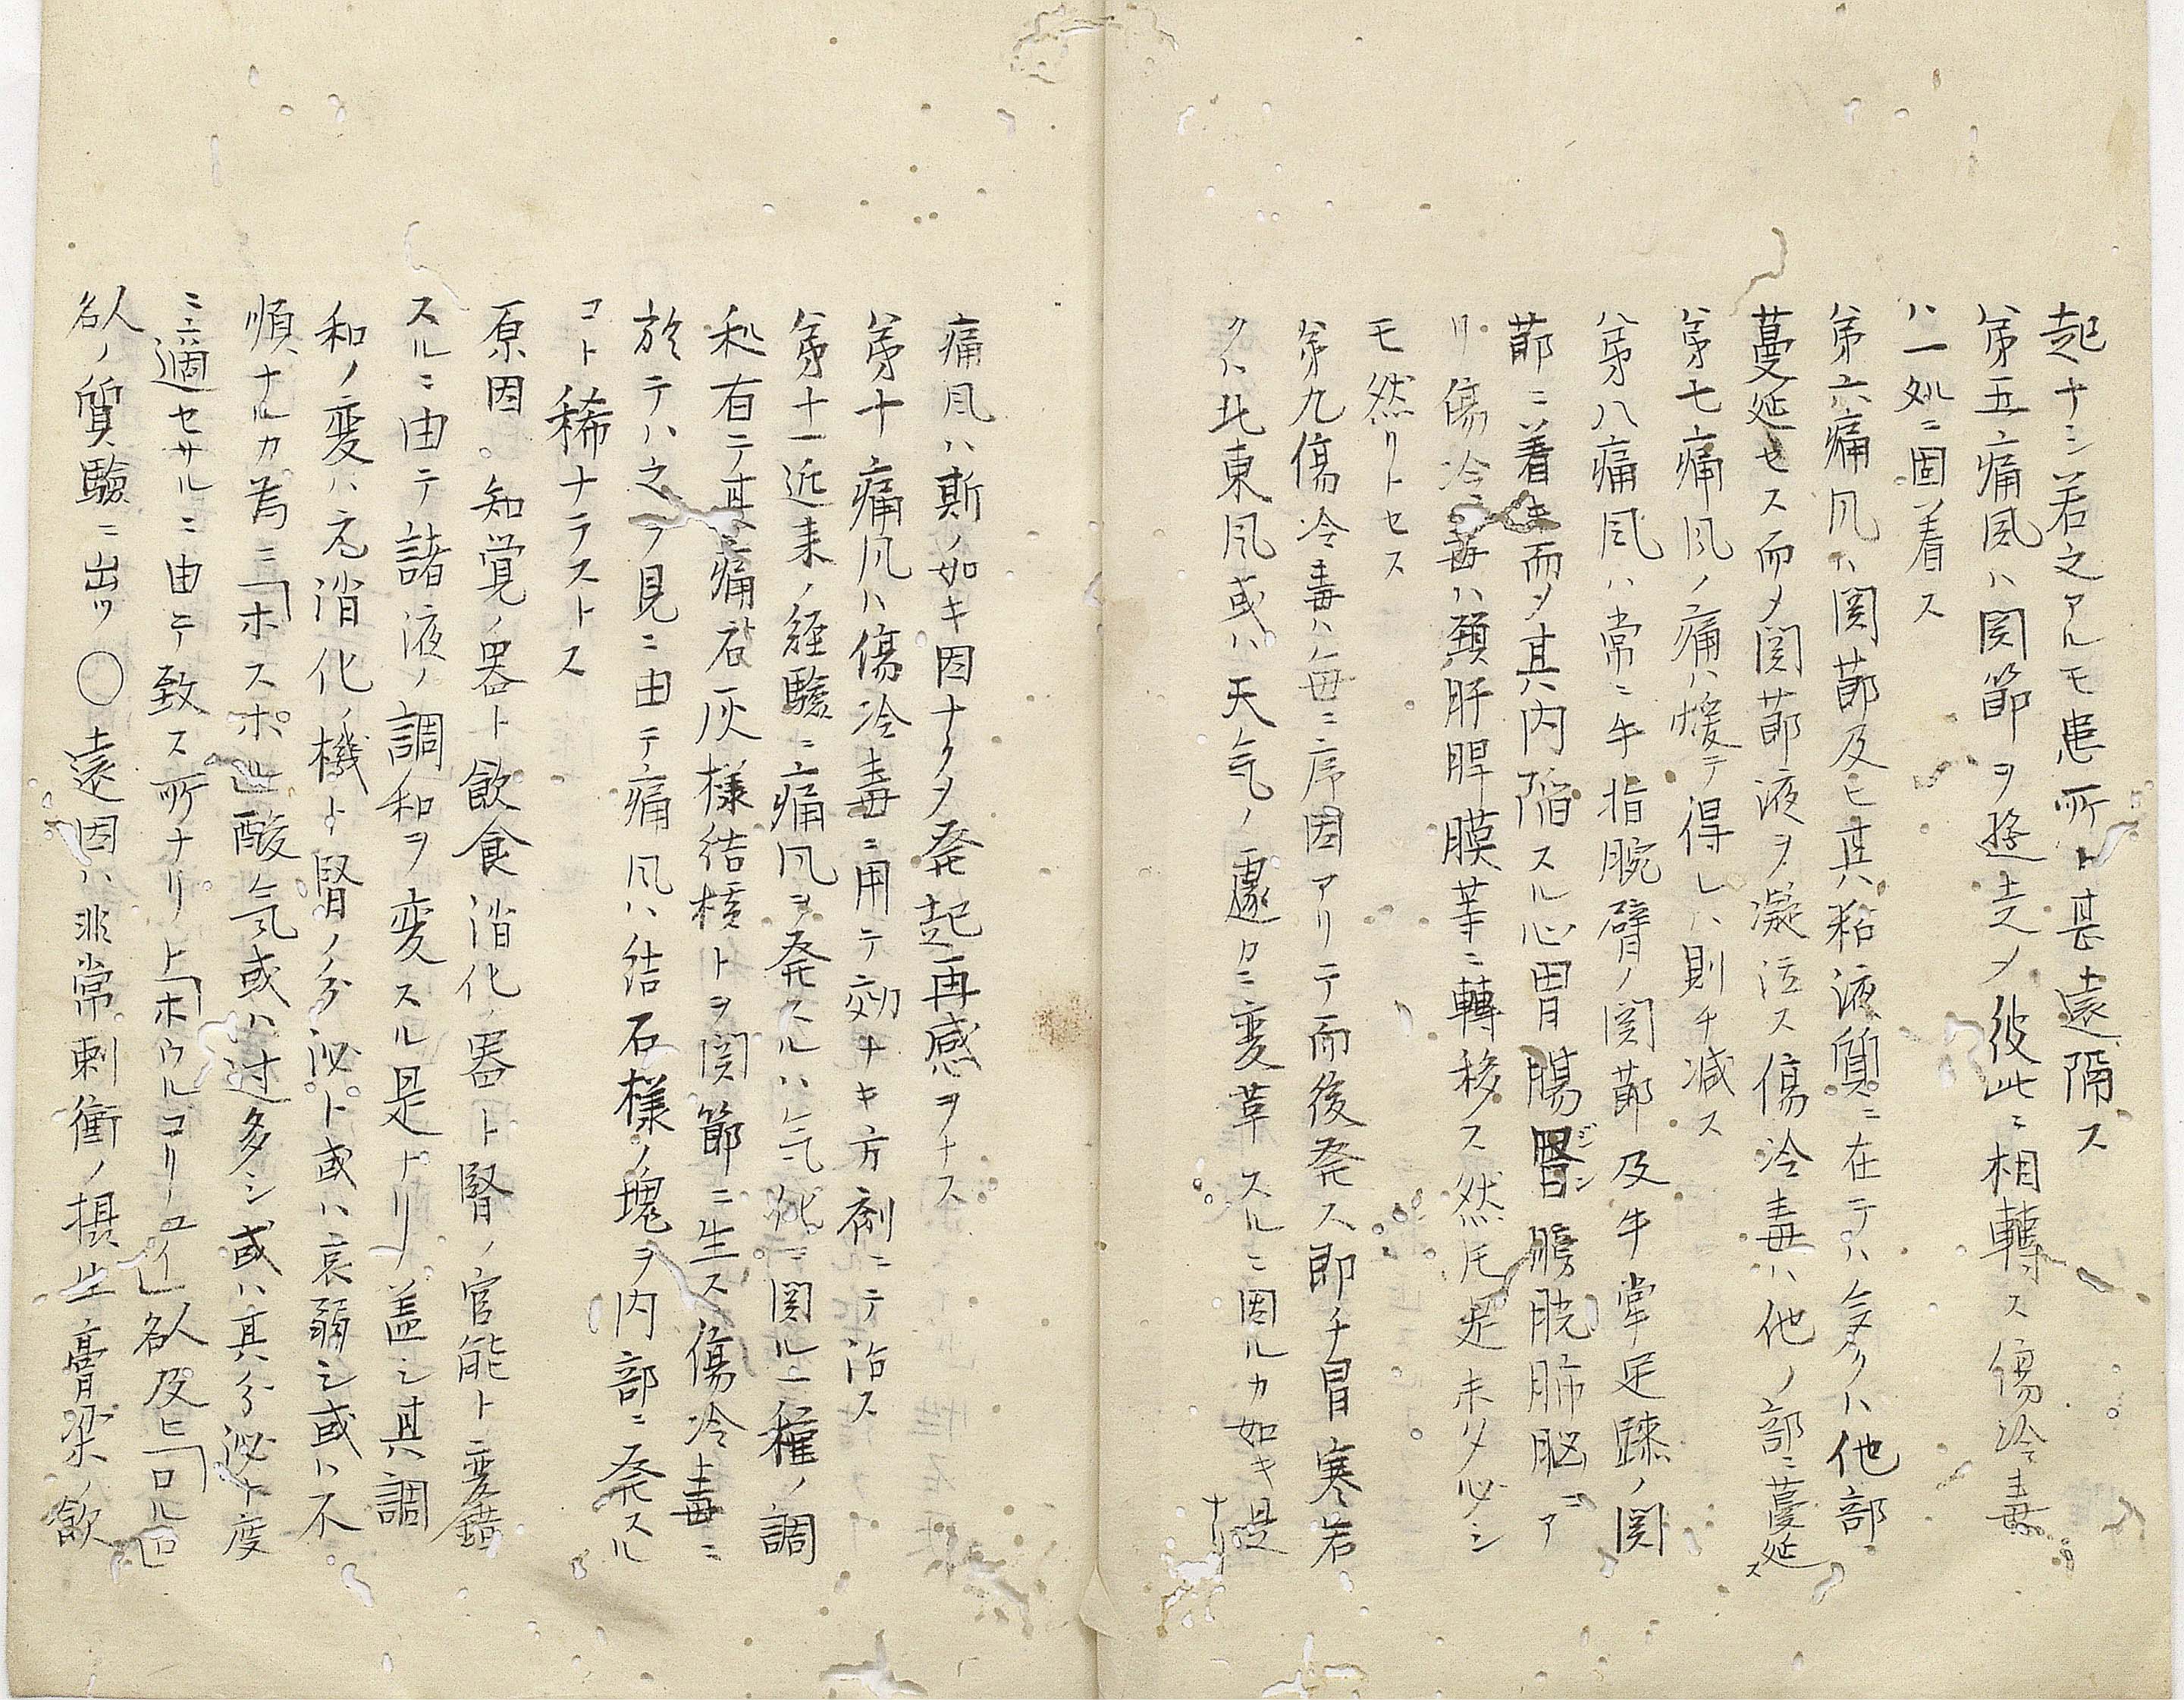 起ナシ若之アルモ患所ト甚遠隔ス
第五痛風ハ関節ヲ遊走メ彼此ニ相轉ス傷冷毒
ハ一処ニ固着ス
第六痛風ハ関節及ヒ其粘液質ニ在テハ多クハ他部ニ
蔓延セス而メ関節液ヲ凝泣ス傷冷毒ハ他ノ部ニ蔓延ス
第七痛風ノ痛ハ煖テ得レハ則チ減ス
第八痛風ハ常ニ手指腕臂ノ関節及手掌足踝ノ関
節ニ着 而メ其内陥スル心胃腸腎膀胱肺脳ニア
リ傷冷毒ハ頚肝脾膜等ニ轉移ス然圧是未タ必シ
モ然リトセス
第九傷冷毒ハ毎ニ序因アリテ而後発ス即チ冒寒若
クハ北東風或ハ天気ノ遽カニ変革スルニ因ルカ如キ是ナリ
痛風ハ斯ノ如キ因ナクメ発起再感ヲナス
第十痛風ハ傷冷毒ニ用テ効ナキ方剤ニテ治ス
第十一近来ノ経験ニ痛風ヲ発スルハ気化ニ関ル一種ノ調
和有テ其痛 石灰様結核トヲ関節ニ生ス傷冷毒ニ
於テハ之ヲ見ニ由テ痛風ハ結石様ノ塊ヲ内部ニ発スル
コト稀ナラストス
原因。知覚ノ器ト飲食消化ノ器ト腎ノ官能ト変錯
スルニ由テ諸液ノ調和ヲ変スル是ナリ蓋シ其調
和ノ変ハ元消化ノ機ト腎ノ分泌ト或ハ衰弱シ或ハ不
順ナルカ為ニ「ホスポ」酸気或ハ过多シ或ハ其分泌ト度
ニ適セサルニ由テ致ス所ナリト「ホウルコリーユイ」欽及ヒ「ロルロ」
欽ノ質験ニ出ツ〇遠因ハ非常刺衝ノ摂生膏梁ノ飲